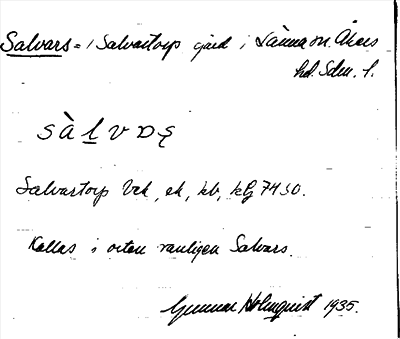 Salvars = / Salvartorp gård i Länna sn. Åkers
hd. Sdm. l.
sàl̲vDȩ
Salvartorp Vek, ek, kb, klj 7430.
Kallas i orten vanligen Salvars.
Gunnar Holmquist 1935.